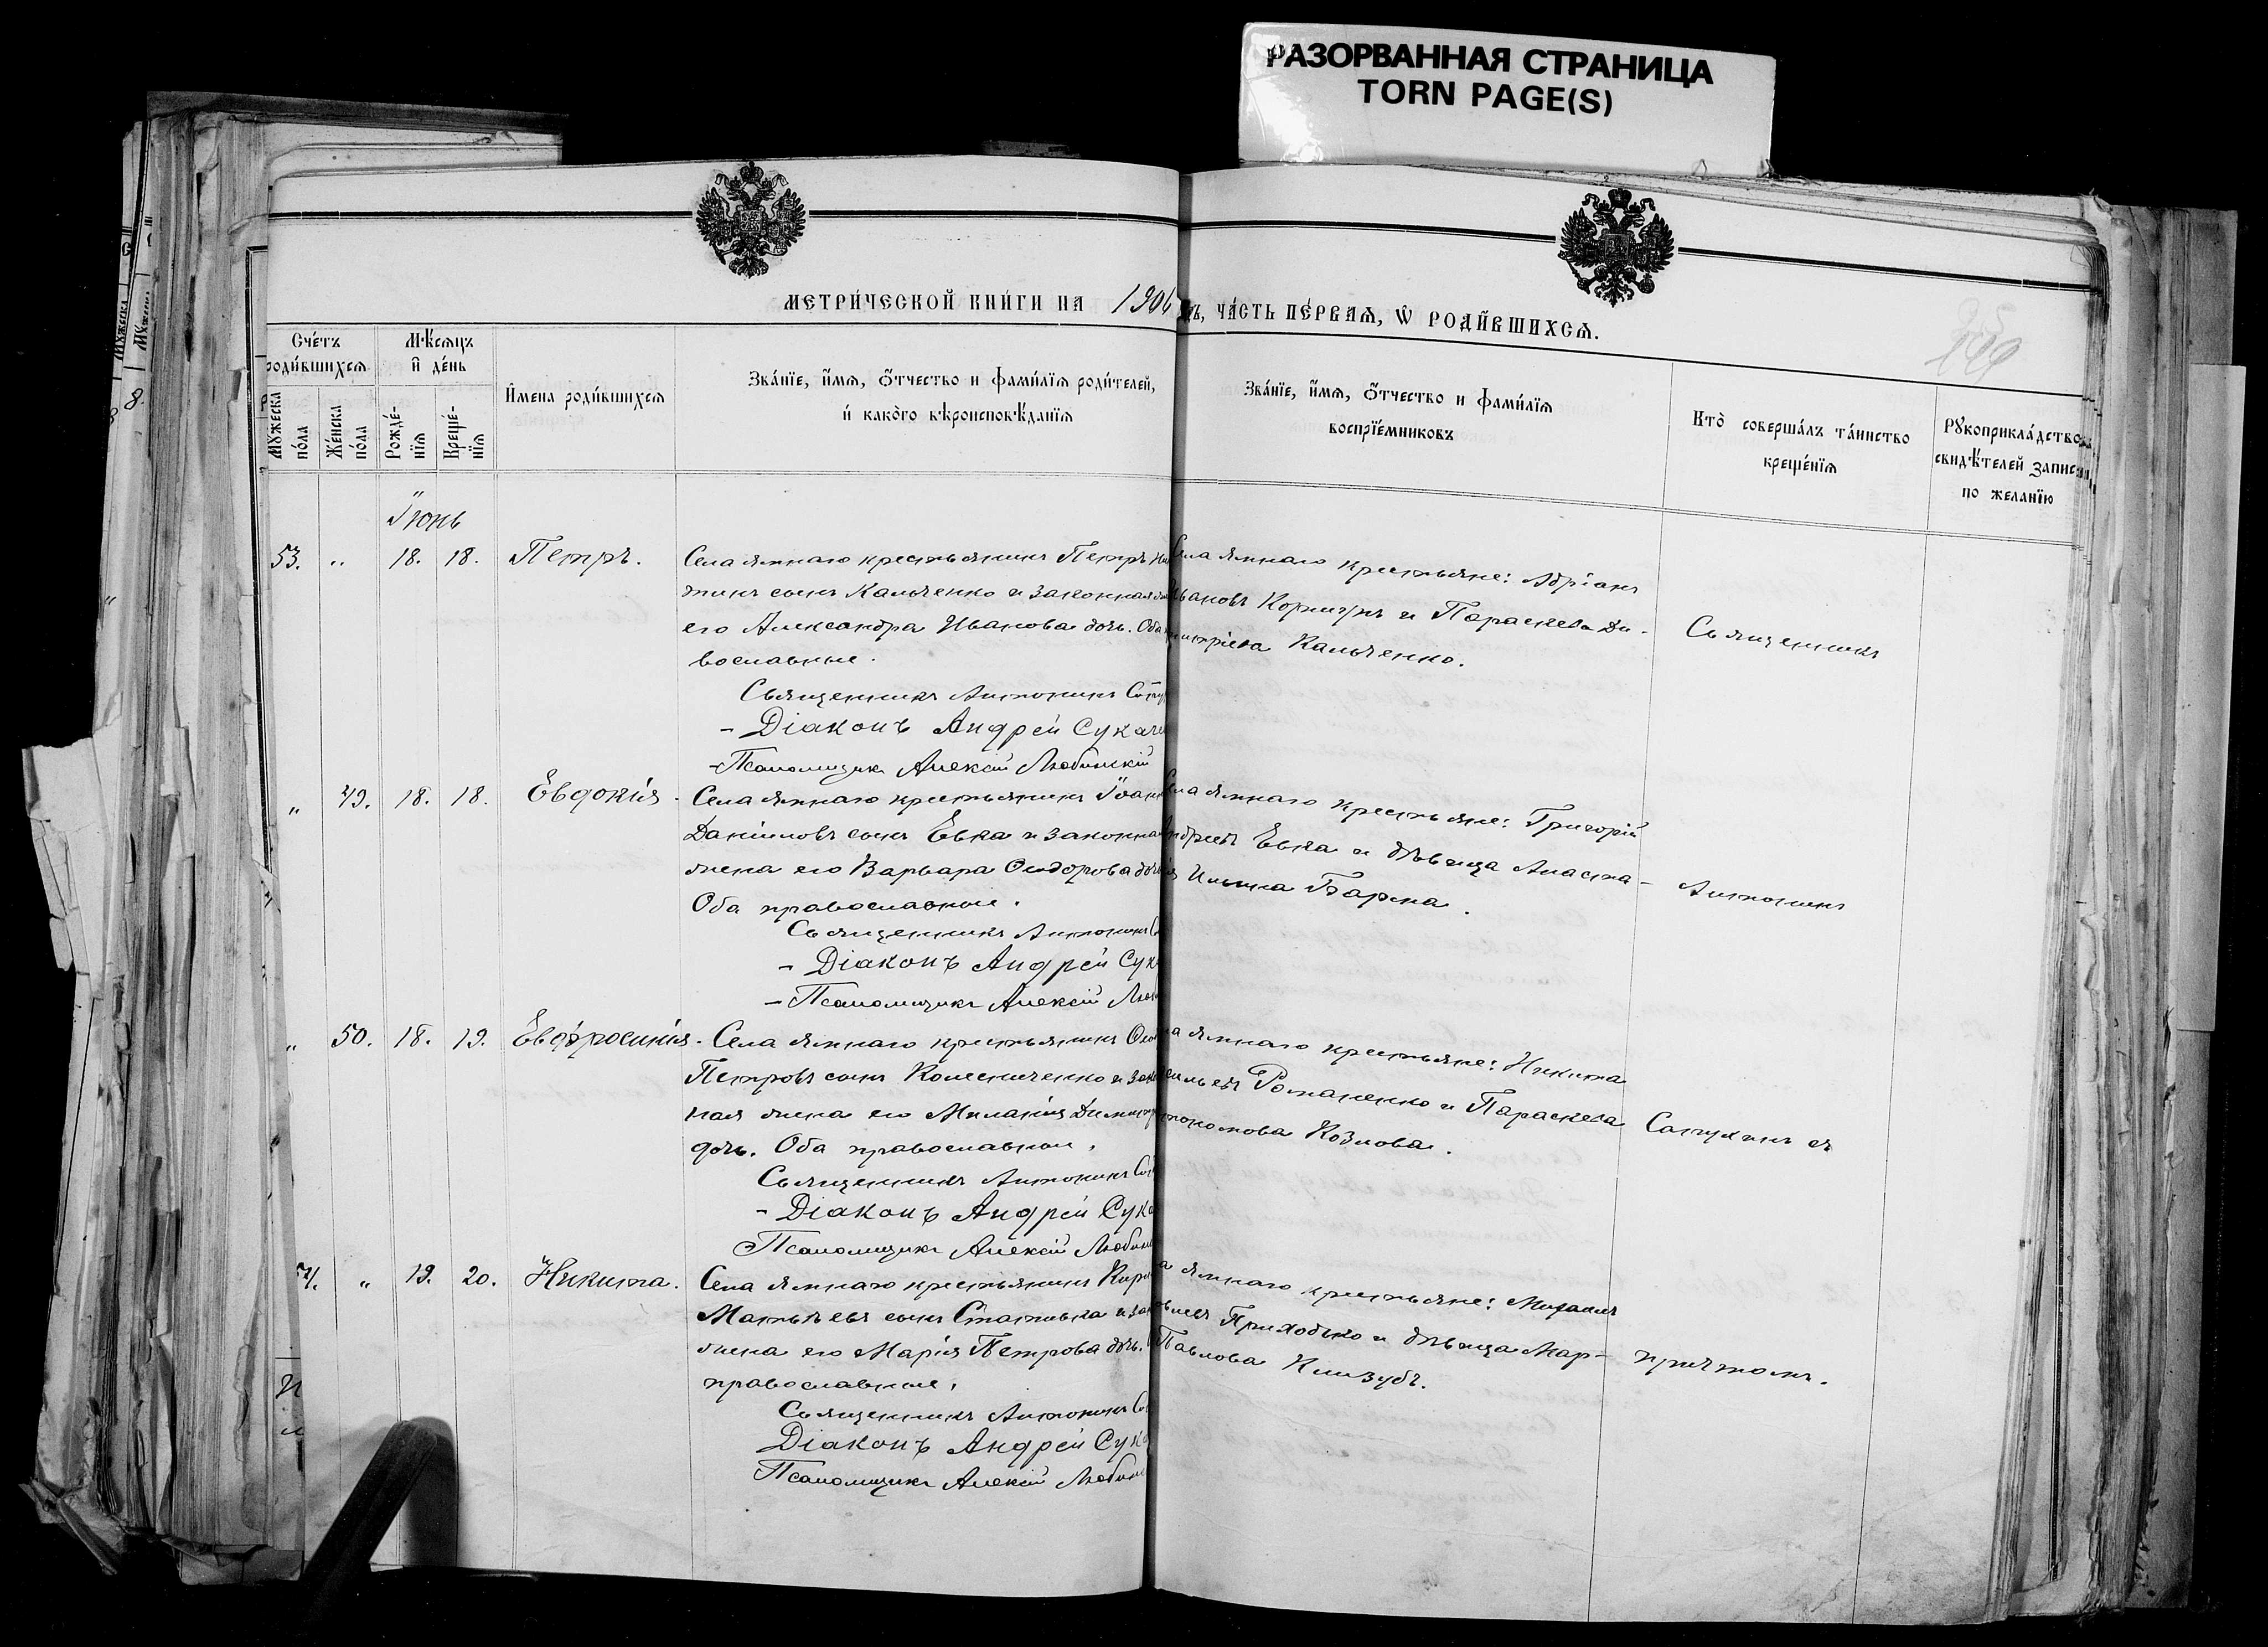 РАЗОРВАННАЯ СТРАНИЦА
TORN PAGE(S)
МЕТРИЧЕСКОЙ КНИГИ НА 1906
ЧАСТЬ ПЕРВАЯ, Ѡ РОДИВШИХСЯ.
Счетъ родившихся
Мужеска пола
Женска пола
Мѣсяцъ и день
Рожденія
Крещенія
Имена родившихся
Званіе, имя, отчество и фамилія родителей,
и какого вѣроисповѣданія
Званіе, имя, отчество и фамилія
воспріемниковъ
Кто совершалъ таинство
крещенія
Рукоприкладство
свидѣтелей записи
по желанію
Іюнь
53. „ 18. 18. Петръ.
Села Ямнаго крестьянинъ Петръ Ни
тинъ сынъ Кальченко и законная
его Александра Иванова дочь. Оба
вославные.
Священникъ Антонинъ
- Діаконъ Андрей Сукач
- Псаломщикъ Алексій Любинскій
Села Ямнаго крестьяне: Адріанъ
Ивановъ Коршунъ и Параскева Ди-
митріева Кальченко.
„ 49. 18. 18. Евдокія.
Села Ямнаго крестьянинъ Іоан
Даніиловъ сынъ Евка и законная
жена его Варвара Ѳеодорова дочь
Оба православные.
Священникъ Антонинъ
- Діаконъ Андрей Сук
- Псаломщикъ Алексій Люб
Села Ямнаго крестьяне: Григорій
Андреевъ Евка и дѣвица Анаста-
Ильина
„ 50. 18. 19. Евфросинія.
Села Ямнаго крестьянинъ Ѳео
Петровъ сынъ Колесниченко и зак
ная жена его Миланія Димитр
дочь. Оба православные.
Священникъ Антонинъ
- Діаконъ Андрей Сука
Псаломщикъ Алексій Любин
Ямнаго крестьяне: Никита
Романенко и Параскева
Козлова.
54. „ 19. 20. Никита.
Села Ямнаго крестьянинъ Кири
Матвѣевъ сынъ Стативка и зак
жена его Марія Петрова дочь.
православные.
Священникъ Антонинъ
Діаконъ Андрей Сука
Псаломщикъ Алексій Любин
Ямнаго крестьяне: Михаилъ
Приходько и дѣвица Мар-
Павлова
Священникъ
Антонинъ
Сапухинъ съ
причтомъ.